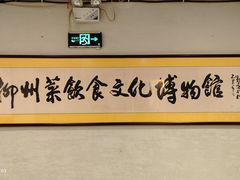 柳州菜飲食文化博物館